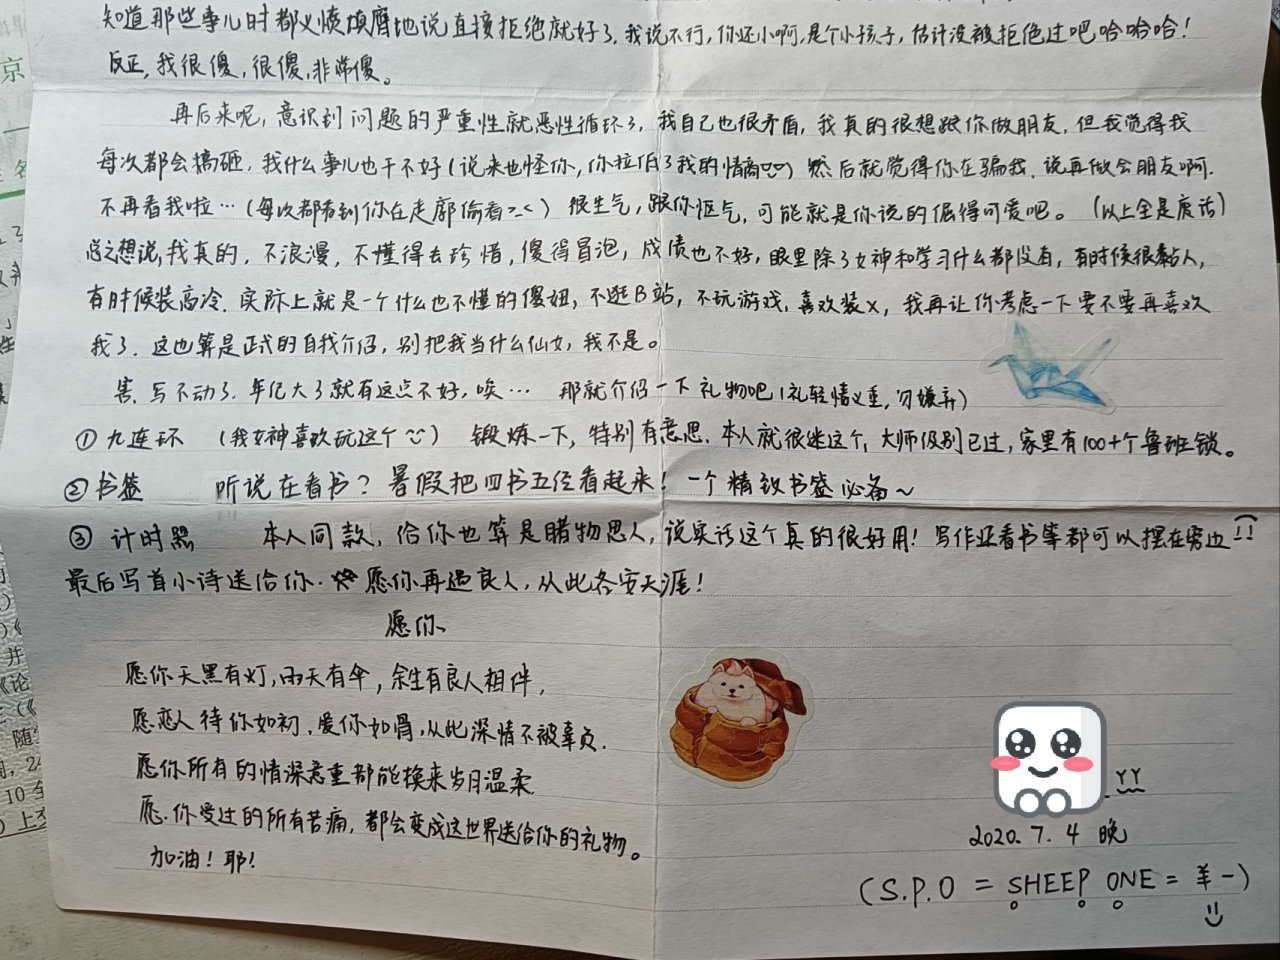 知道那些事儿时都义愤填膺地说直接拒绝就好了,我说不行,你还小啊,是个小孩子,估计没被拒绝过吧哈哈哈!
反正,我很傻,很傻,非常傻。
再后来呢,意识到问题的严重性就恶性循环了,我自己也很矛盾,我真的很想跟你做朋友,但我觉得我
每次都会搞砸,我什么事儿也干不好(说来也怪你,你拉低了我的情商) 然后就觉得你在骗我,说再做会朋友啊,
不再看我啦…(每次都看到你在走廊偷看>_<) 很生气,跟你怄气,可能就是你说的倔得可爱吧。(以上全是废话)
总之想说,我真的,不浪漫,不懂得去珍惜,傻得冒泡,成绩也不好,眼里除了女神和学习什么都没有,有时候很黏人,
有时候装高冷.实际上就是一个什么也不懂的傻妞,不逛B站,不玩游戏,喜欢装x,我再让你考虑一下要不要再喜欢
我了.这也算是正式的自我介绍,别把我当什么仙女,我不是。
害,写不动了.年纪大了就有这点不好,唉… 那就介绍一下礼物吧(礼轻情义重,勿嫌弃)
①九连环 (我女神喜欢玩这个) 锻炼一下,特别有意思.本人就很迷这个,大师级别已过,家里有100+个鲁班锁。
②书签 听说在看书?暑假把四书五经看起来!一个精致书签必备~
③计时器 本人同款,给你也算是睹物思人,说实话这个真的很好用!写作业看书等都可以摆在旁边
最后写首小诗送给你.愿你再遇良人,从此各安天涯!
愿你
愿你天黑有灯,雨天有伞,余生有良人相伴,
愿恋人待你如初,爱你如骨,从此深情不被辜负.
愿你所有的情深意重都能换来岁月温柔.
愿.你受过的所有苦痛,都会变成这世界送给你的礼物。
加油!耶!
YY
2020.7.4 晚
(S.P.O = SHEEP ONE = 羊一)